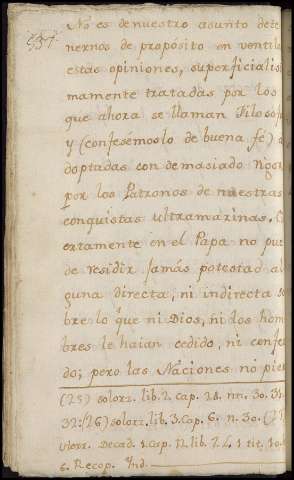 No es de nuestro asunto dete
nernos de propósito en ventila
estas opiniones, superficialisi
mamente tratadas por los
que ahora se llaman Filosof
y (confesémoslo de buena fe) a
doptadas con demasiado rigor
por los Patronos de nuestras
conquistas ultramarinas. Ci
ertamente en el Papa no pue
de residir jamás potestad al
guna directa, ni indirecta so
bre lo que ni Dios, ni los hom
bres le haian cedido, ni confe
do; pero las Naciones no pier
(25) solorz. lib. 2. cap. 24. nn. 30. 31.
32: (26) solorz. lib. 3. Cap. 6. n. 30. (27)
Decad. 1. Cap. 12. lib. 7. L. 1 tit. 10.
6. Recop. Ynd.